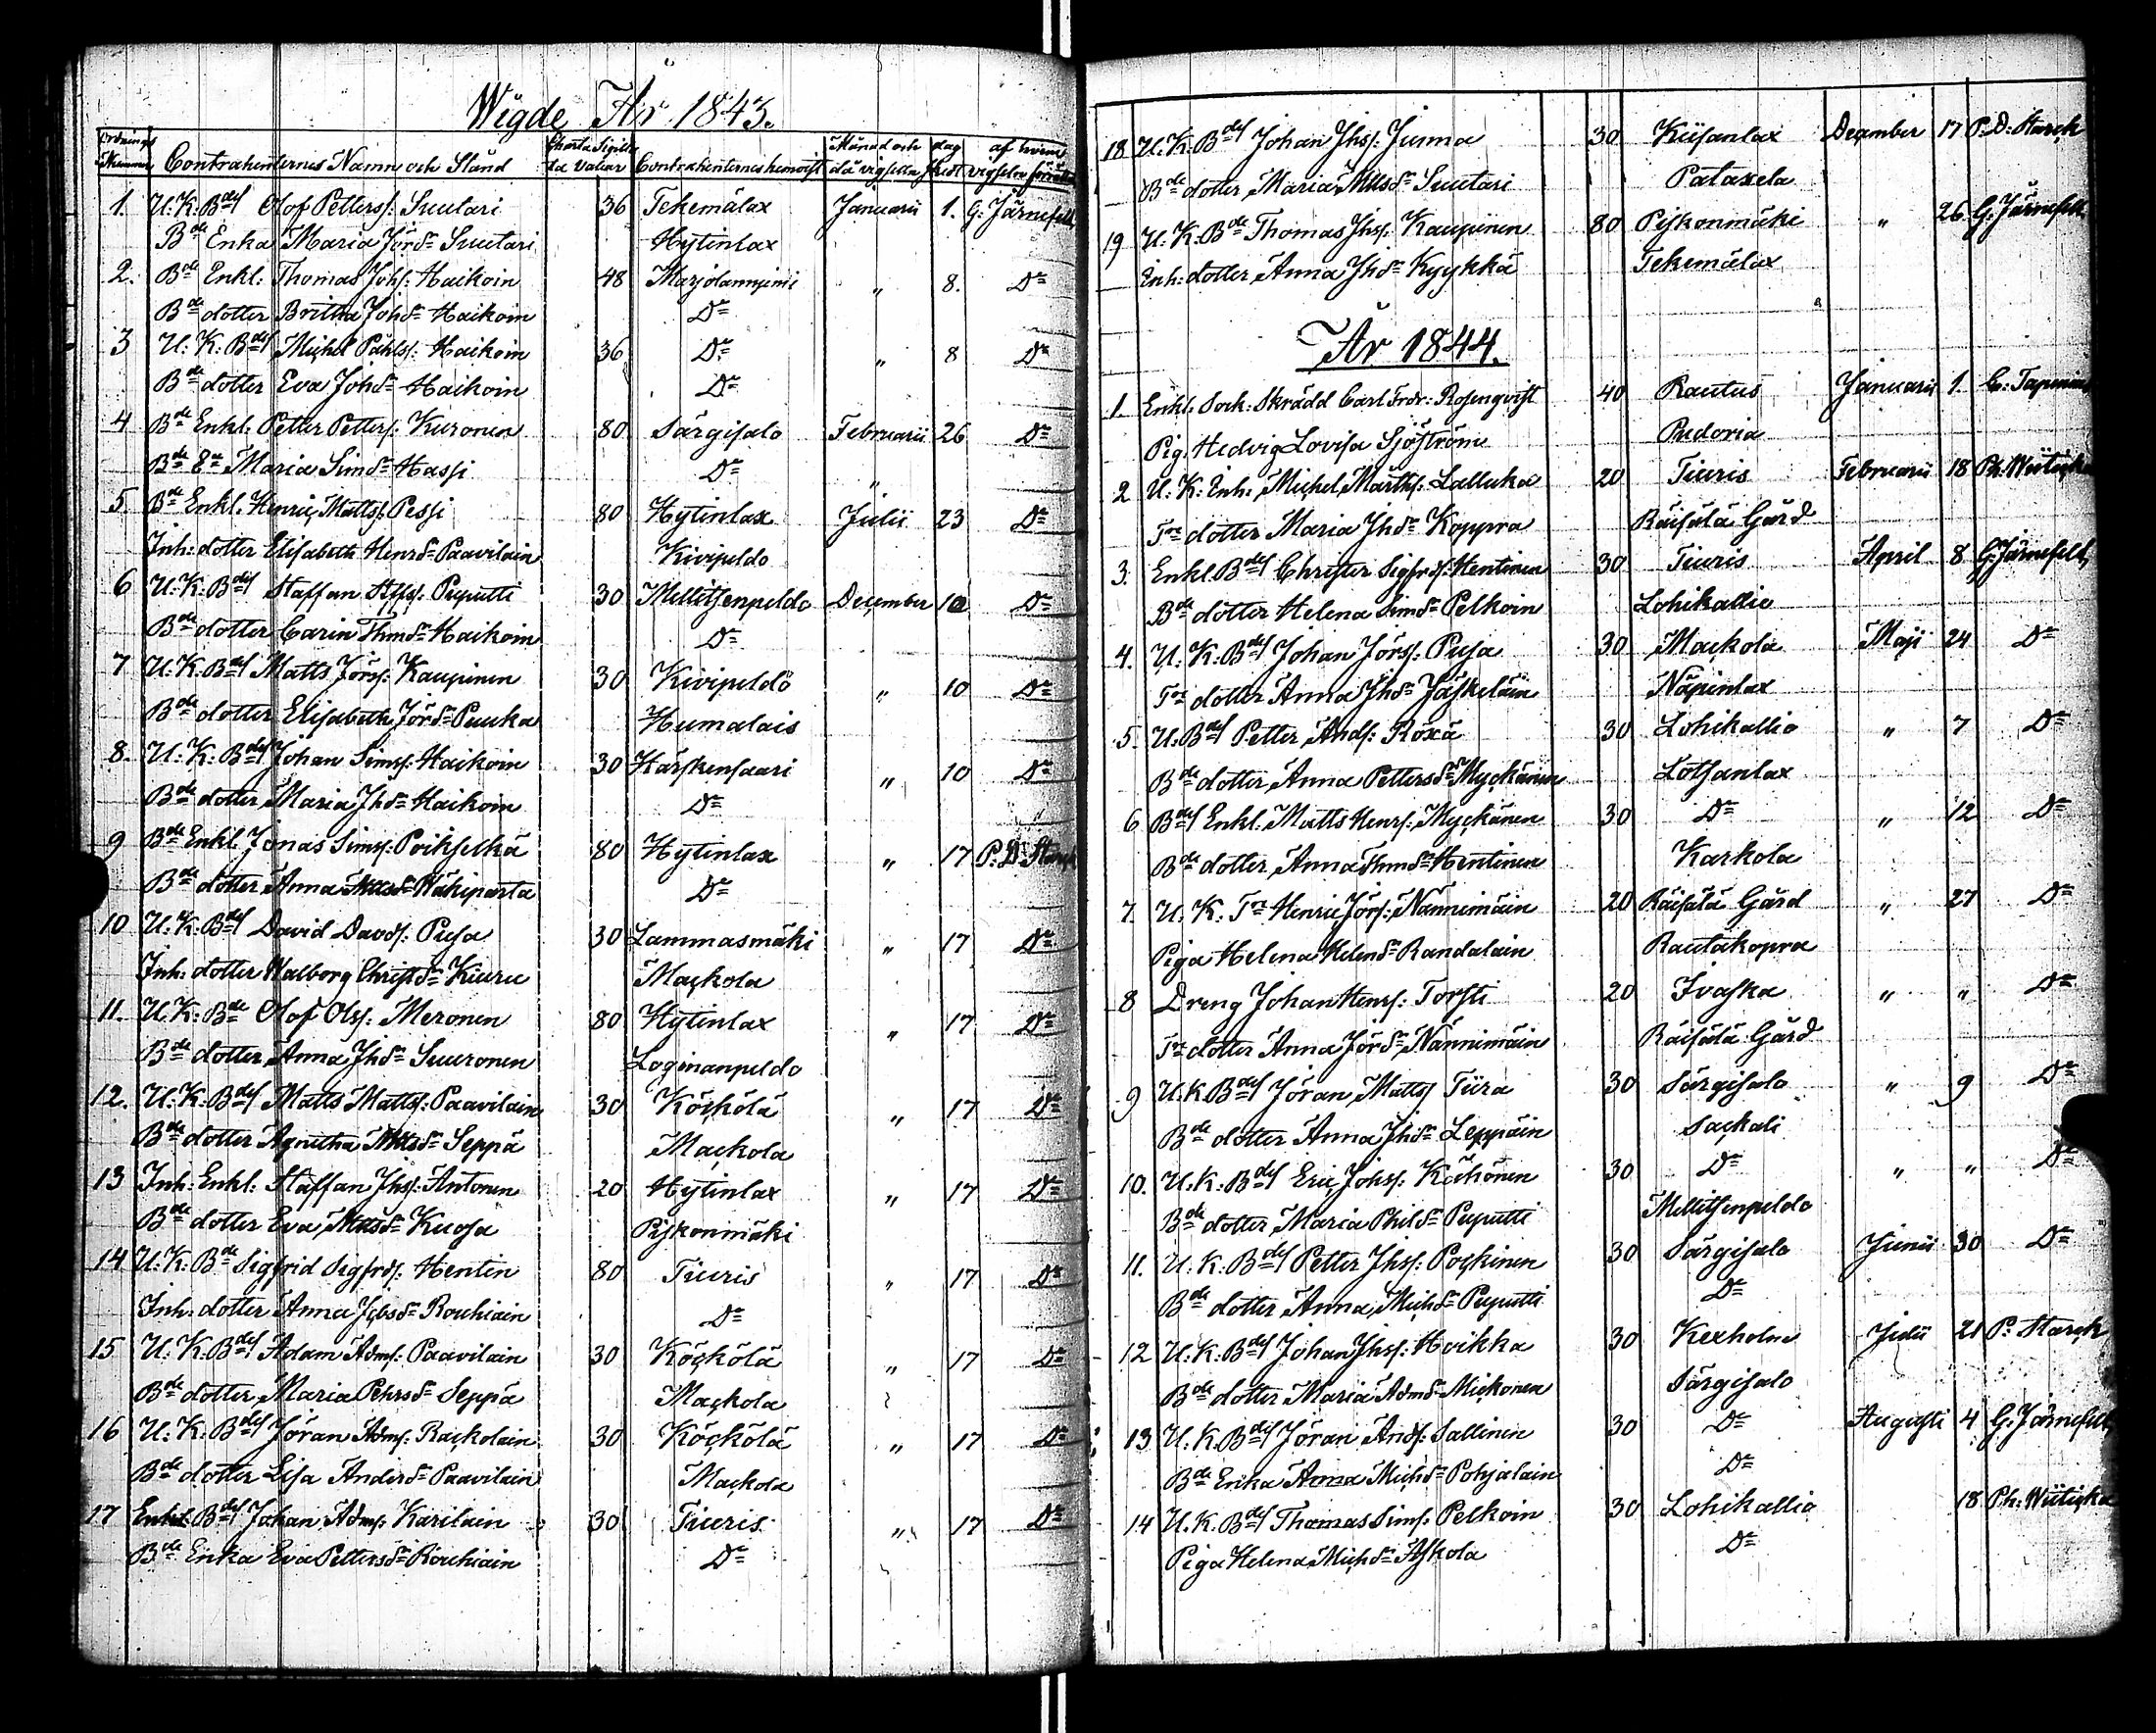 Wigde År 1843.
Ordnings Nummer Contrahenternes Namn och Stånd Charta Sigillata Valeur Contrahenternes hemvist Månad och dag då vigseln skedt af hvem vigseln förrättats
1. U: K: Bdes Olof Petters: Suutari 36 Tekemälax Januarii 1. G: Järnefelt
Bde Enka Maria Jördr Suutari Hytinlax
2. Bde Enkl: Thomas Johs: Haikoin 48 Marjolanniemi " 8. Do
Bde dotter Britha Johdr Haikoin Do
3 U: K: Bdes Michel Påhls: Haikoin 36 Do " 8 Do
Bde dotter Eva Johdr Haikoin Do
4 Bde Enkl: Petter Petters: Kuronen 80 Särgisalo Februarii 26 Do
Bde Ea Maria Simdr Hassi Do "
5 Bde Enkl. Henric Matts: Pessi 80 Hytinlax Julii 23 Do
Inh: dotter Elisabeth Henrdr Paavilain Kivipeldo
6 U: K: Bdes Staffan Stffs: Puputti 30 Mellitsenpeldo December 10 Do
Bde dotter Carin Thmdr Haikoin Do
7 U: K: Bdes Matts Jörs: Kaupinen 30 Kivipeldo " 10 Do
Bde dotter Elisabeth Jördr Puuka Humalais
8. U: K: Bdes Johan Sims: Haikoin 30 Härskensaari " 10 Do
Bde dotter Maria Jhdr Haikoin Do
9 Bde Enkl Jonas Sims: Poikselkä 80 Hytinlax " 17 P: D: Starck
Bde dotter Anna Mttsdr Wähiparta Do
10 U: K: Bdes David Davds: Pusa 30 Lammasmäki " 17 Do
Inh: dotter Walborg Christdr Kiuru Mackola
11. U: K: Bde Olof Ols: Meronen 80 Hytinlax " 17 Do
Bde dotter Anna Jhdr Suuronen Loginanpeldo
12. U: K: Bdes Matts Matts: Paavilain 30 Köckölä " 17 Do
Bde dotter Agnetha Mttsdr Seppä Mackola
13 Inh: Enkl: Staffan Jhs: Antonen 20 Hytinlax " 17 Do
Bde dotter Eva Mttsdr Kuosa Pijkonmäki
14 U: K: Bde Sigfrid Sigfrds: Hentin 80 Tiuris " 17 Do
Inh: dotter Anna Jcbsdr Rouhiain Do
15 U: K: Bdes Adam Adms: Paavilain 30 Köckölä " 17 Do
Bde dotter Maria Pehrsdr Seppä Mackola
16 U: K: Bdes Jöran Adms: Rackolain 30 Köckölä " 17 Do
Bde dotter Lisa Andersdr Paavilain Mackola
17 Enkl Bdes Johan Adms: Karilain 30 Tiuris " 17 Do
Bde Enka Eva Pettersdr Rouhiain Do
18 U: K: Bdes Johan Jhs: Junna 30 Kiisanlax December 17 P: D: Starck
Bde dotter Maria Mttsdr Suutari Pataxela
19 U: K: Bde Thomas Jhs: Kaupinen 80 Pijkonmäki " 26 G: Järnefelt
Inh: dotter Anna Jhdr Kyykkä Tekemälax
År 1844.
1. Enkl. Sock: Skrädd Carl Frdr: Rosenqvist 40 Rautus Januarii 1.
Pig. Hedvig Lovisa Sjöström Pudoria
2 U: K: Inh: Michel Märths: Lalluka 20 Tiuris Februarii 18
Tre dotter Maria Jhdr Koppra Räisälä Gård
3. Enkl Bdes Christer Sigfrds: Hentinen 30 Tiuris April 8 G: Järnefelt
Bde dotter Helena Simdr Pelkoin Lohikallio
4. U: K: Bdes Johan Jörs: Pusa 30 Mackola Maji 24 Do
Tre dotter Anna Jhdr Jäskeläin Näpinlax
5. U: Bdes Petter Ands: Röxä 30 Lohikallio " 7 Do
Bde dotter Anna Pettersdr Myckänen Lötsanlax
6 Bdes Enkl. Matts Henrs: Myckänen 30 Do " 12 Do
Bde dotter Anna Thmdr Hentinen Karkola
7. U: K. Tre Henric Jörs: Nännimäin 20 Räisälä Gård " 27 Do
Piga Helena Helendr Randalain Rautakopra
8 Dreng Johan Henrs: Torsti 20 Ivaska " " Do
Tre dotter Anna Jördr Nännimäin Räisälä Gård
9 U: K Bdes Jöran Matts Tiira 30 Särgisalo " 9 Do
Bde dotter Anna Jhdr Leppäin Sackali
10. U: K. Bdes Eric Johs: Köckönen 30 Do " " Do
Bde dotter Maria Phildr Puputti Mellitsenpeldo
11. U: K. Bdes Petter Jhs: Poskinen 30 Särgisalo Junii 30 Do
Bde dotter Anna Michdr Puputti Do
12 U: K: Bdes Johan Jhs: Hvikka 30 Kexholm Julii 21 P: Starck
Bde dotter Maria Admdr Mickonen Särgisalo
13 U: K: Bdes Jöran Ands: Sallinen 30 Do Augusti 4 G: Järnefelt
Bde Enka Anna Michdr Pohjalain Do
14 U. K. Bdes Thomas Sims: Pelkoin 30 Lohikallio 18
Piga Helena Michdr Askola Do